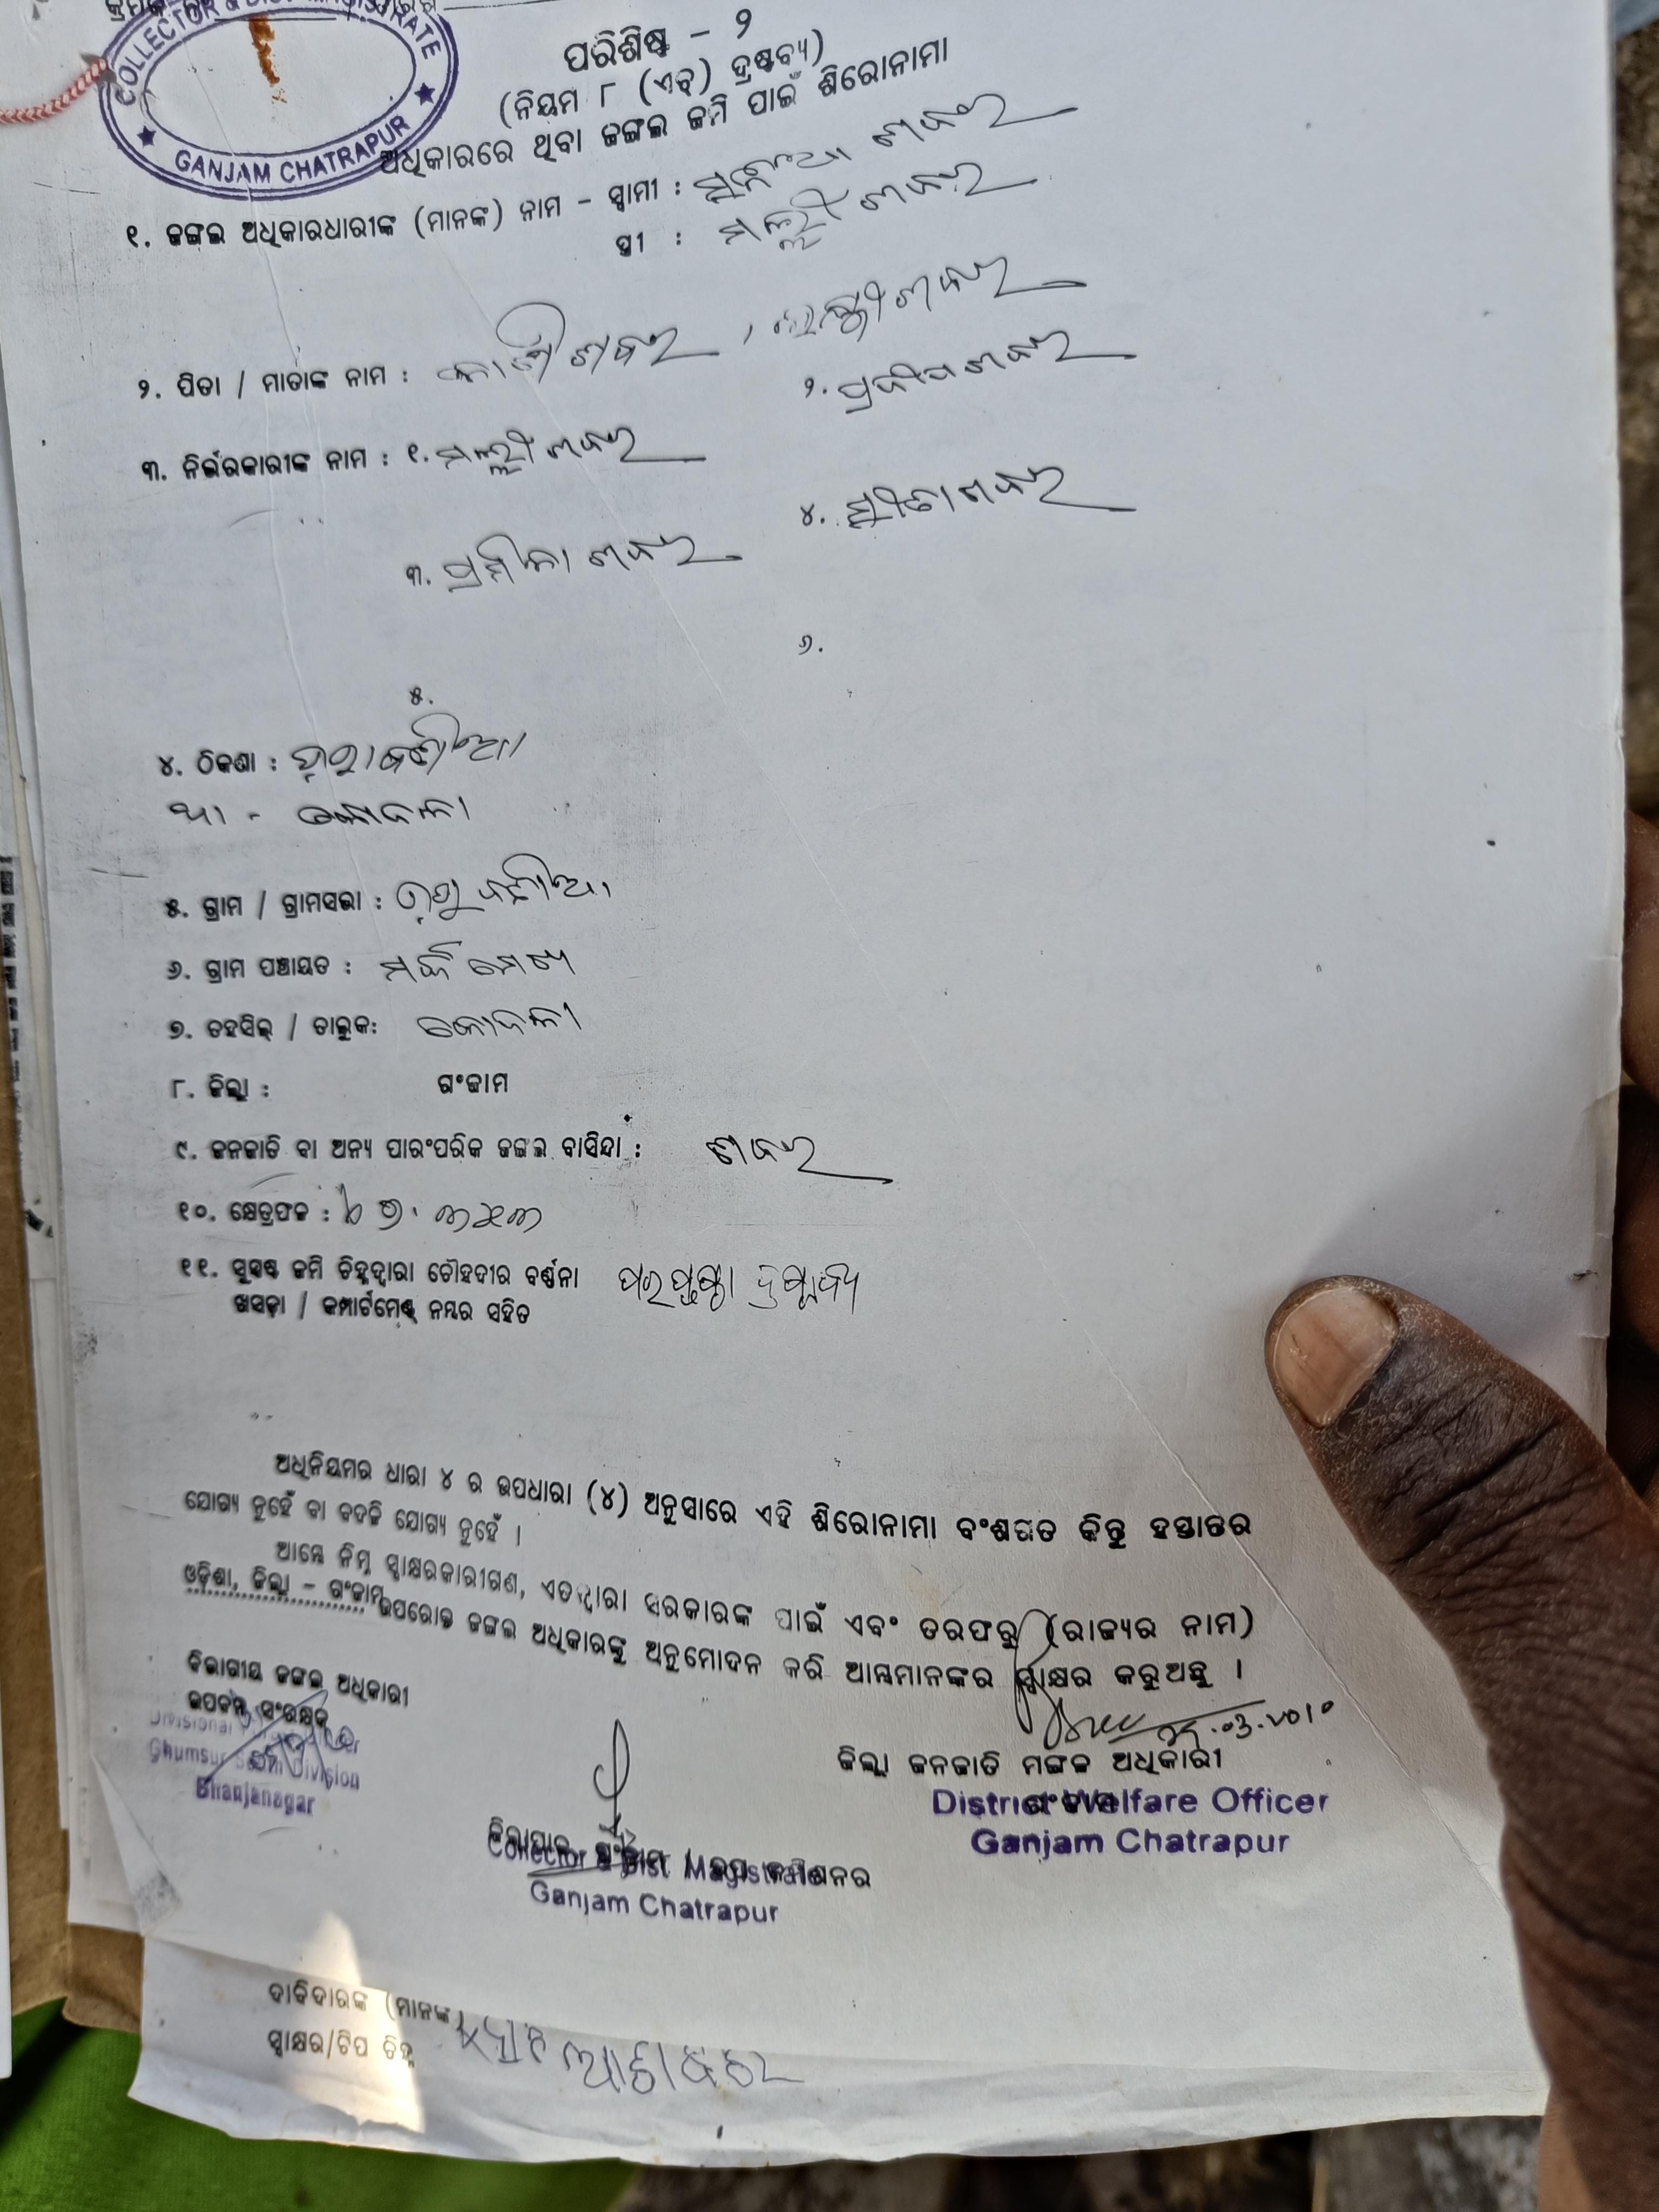 କ୍ରମିକ
COLLECTOR & DIST MAGISTRATE
GANJAM CHATRAPUR
ପରିଶିଷ୍ଟ - ୨
(ନିୟମ ୮ (ଏଚ୍) ଦ୍ରଷ୍ଟବ୍ୟ)
ଅଧିକାରରେ ଥିବା ଜଙ୍ଗଲ ଜମି ପାଇଁ ଶିରୋନାମା
୧. ଜଙ୍ଗଲ ଅଧିକାରଧାରୀଙ୍କ (ମାନଙ୍କ) ନାମ - ସ୍ୱାମୀ : ଶବର
ସ୍ତ୍ରୀ : ମଲ୍ଲୀ ଶବର
୨. ପିତା / ମାତାଙ୍କ ନାମ : ଶବର , ଶବର
୩. ନିର୍ଭରକାରୀଙ୍କ ନାମ : ୧. ମଲ୍ଲୀ ଶବର ୨. ପ୍ରଦୀପ ଶବର
୩. ପ୍ରମିଳା ଶବର ୪. ଶବର
୫. ୬.
୪. ଠିକଣା :
ଥା - କୋଦଳା
୫. ଗ୍ରାମ / ଗ୍ରାମସଭା :
୬. ଗ୍ରାମ ପଞ୍ଚାୟତ :
୭. ତହସିଲ୍ / ତାଲୁକ: କୋଦଳା
୮. ଜିଲ୍ଲା : ଗଂଜାମ
୯. ଜନଜାତି ବା ଅନ୍ୟ ପାରଂପରିକ ଜଙ୍ଗଲ ବାସିନ୍ଦା : ଶବର
୧୦. କ୍ଷେତ୍ରଫଳ :
୧୧. ସୁସ୍ପଷ୍ଟ ଜମି ଚିହ୍ନଦ୍ୱାରା ଚୌହଦୀର ବର୍ଣ୍ଣନା ପରପୃଷ୍ଠା ଦ୍ରଷ୍ଟବ୍ୟ
ଖସଡ଼ା / କମ୍ପାର୍ଟମେଣ୍ଟ ନମ୍ବର ସହିତ
ଅଧିନିୟମର ଧାରା ୪ ର ଉପଧାରା (୪) ଅନୁସାରେ ଏହି ଶିରୋନାମା ବଂଶଗତ କିନ୍ତୁ ହସ୍ତାନ୍ତର
ଯୋଗ୍ୟ ନୁହେଁ ବା ବଦଳି ଯୋଗ୍ୟ ନୁହେଁ ।
ଆମ୍ଭେ ନିମ୍ନ ସ୍ୱାକ୍ଷରକାରୀଗଣ, ଏତଦ୍ୱାରା ସରକାରଙ୍କ ପାଇଁ ଏବଂ ତରଫରୁ (ରାଜ୍ୟର ନାମ)
ଓଡ଼ିଶା, ଜିଲ୍ଲା - ଗଂଜାମ ଉପରୋକ୍ତ ଜଙ୍ଗଲ ଅଧିକାରଙ୍କୁ ଅନୁମୋଦନ କରି ଆମ୍ଭମାନଙ୍କର ସ୍ୱାକ୍ଷର କରୁଅଛୁ ।
ବିଭାଗୀୟ ଜଙ୍ଗଲ ଅଧିକାରୀ
ଉପବନ ସଂରକ୍ଷକ
Divisional
Ghumsur South Division
Bhanjanagar
ଜିଲ୍ଲାପାଳ ଗଂଜାମ / ଉପ କମିଶନର
Collector & Dist Magistrate
Ganjam Chatrapur
.03.2010
ଜିଲ୍ଲା ଜନଜାତି ମଙ୍ଗଳ ଅଧିକାରୀ
ଗଂଜାମ
District Welfare Officer
Ganjam Chatrapur
ଦାବିଦାରଙ୍କ (ମାନଙ୍କ)
ସ୍ୱାକ୍ଷର/ଟିପ ଚିହ୍ନ